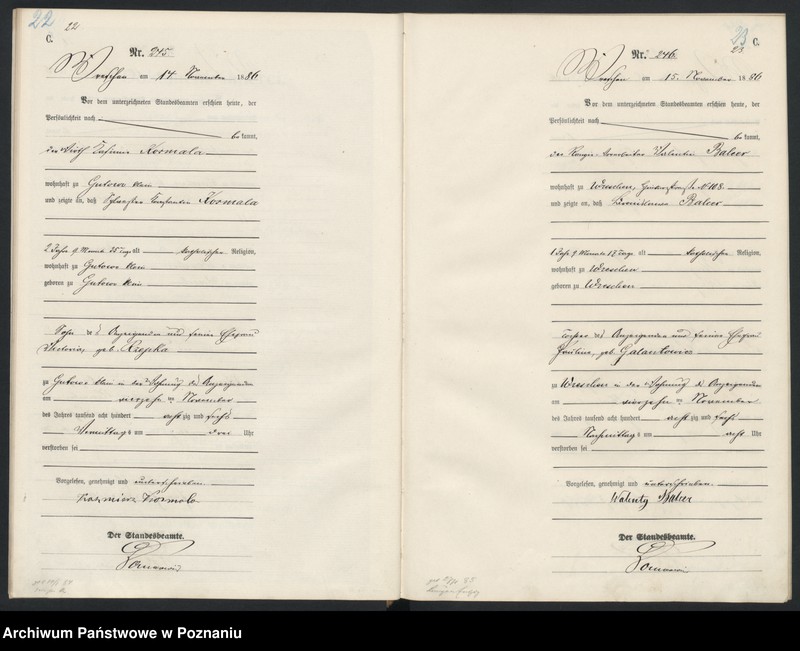 22 22
C.
Nr. 245.
Wreschen am 14. November 1886
Vor dem unterzeichneten Standesbeamten erschien heute, der
Persönlichkeit nach
bekannt,
der Wirth Kosmala
wohnhaft zu Gutowo klein
und zeigte an, daß Kosmala
2 Jahr 9 Monate 25 Tage alt katholischer Religion,
wohnhaft zu Gutowo klein
geboren zu Gutowo klein
Sohn des Anzeigenden und seiner Ehefrau
geb. Rzepka
zu Gutowo klein in der Wohnung des Anzeigenden
am vierzehnten November
des Jahres tausend acht hundert achtzig und sechs
Vormittags um drei Uhr
verstorben sei
Vorgelesen, genehmigt und unterschrieben.
Kazmierz Kosmala
Der Standesbeamte.
23 23
C.
Nr. 246.
Wreschen am 15. November 1886
Vor dem unterzeichneten Standesbeamten erschien heute, der
Persönlichkeit nach
bekannt,
der Valentin Balcer
wohnhaft zu Wreschen, № 108.
und zeigte an, daß Balcer
1 Jahr 9 Monate 17 Tage alt katholischer Religion,
wohnhaft zu Wreschen
geboren zu Wreschen
des Anzeigenden und seiner Ehefrau
geb. Galantowicz
zu Wreschen in der Wohnung des Anzeigenden
am vierzehnten November
des Jahres tausend acht hundert achtzig und sechs
Nachmittags um acht Uhr
verstorben sei
Vorgelesen, genehmigt und unterschrieben.
Walenty Balcer
Der Standesbeamte.
Archiwum Państwowe w Poznaniu